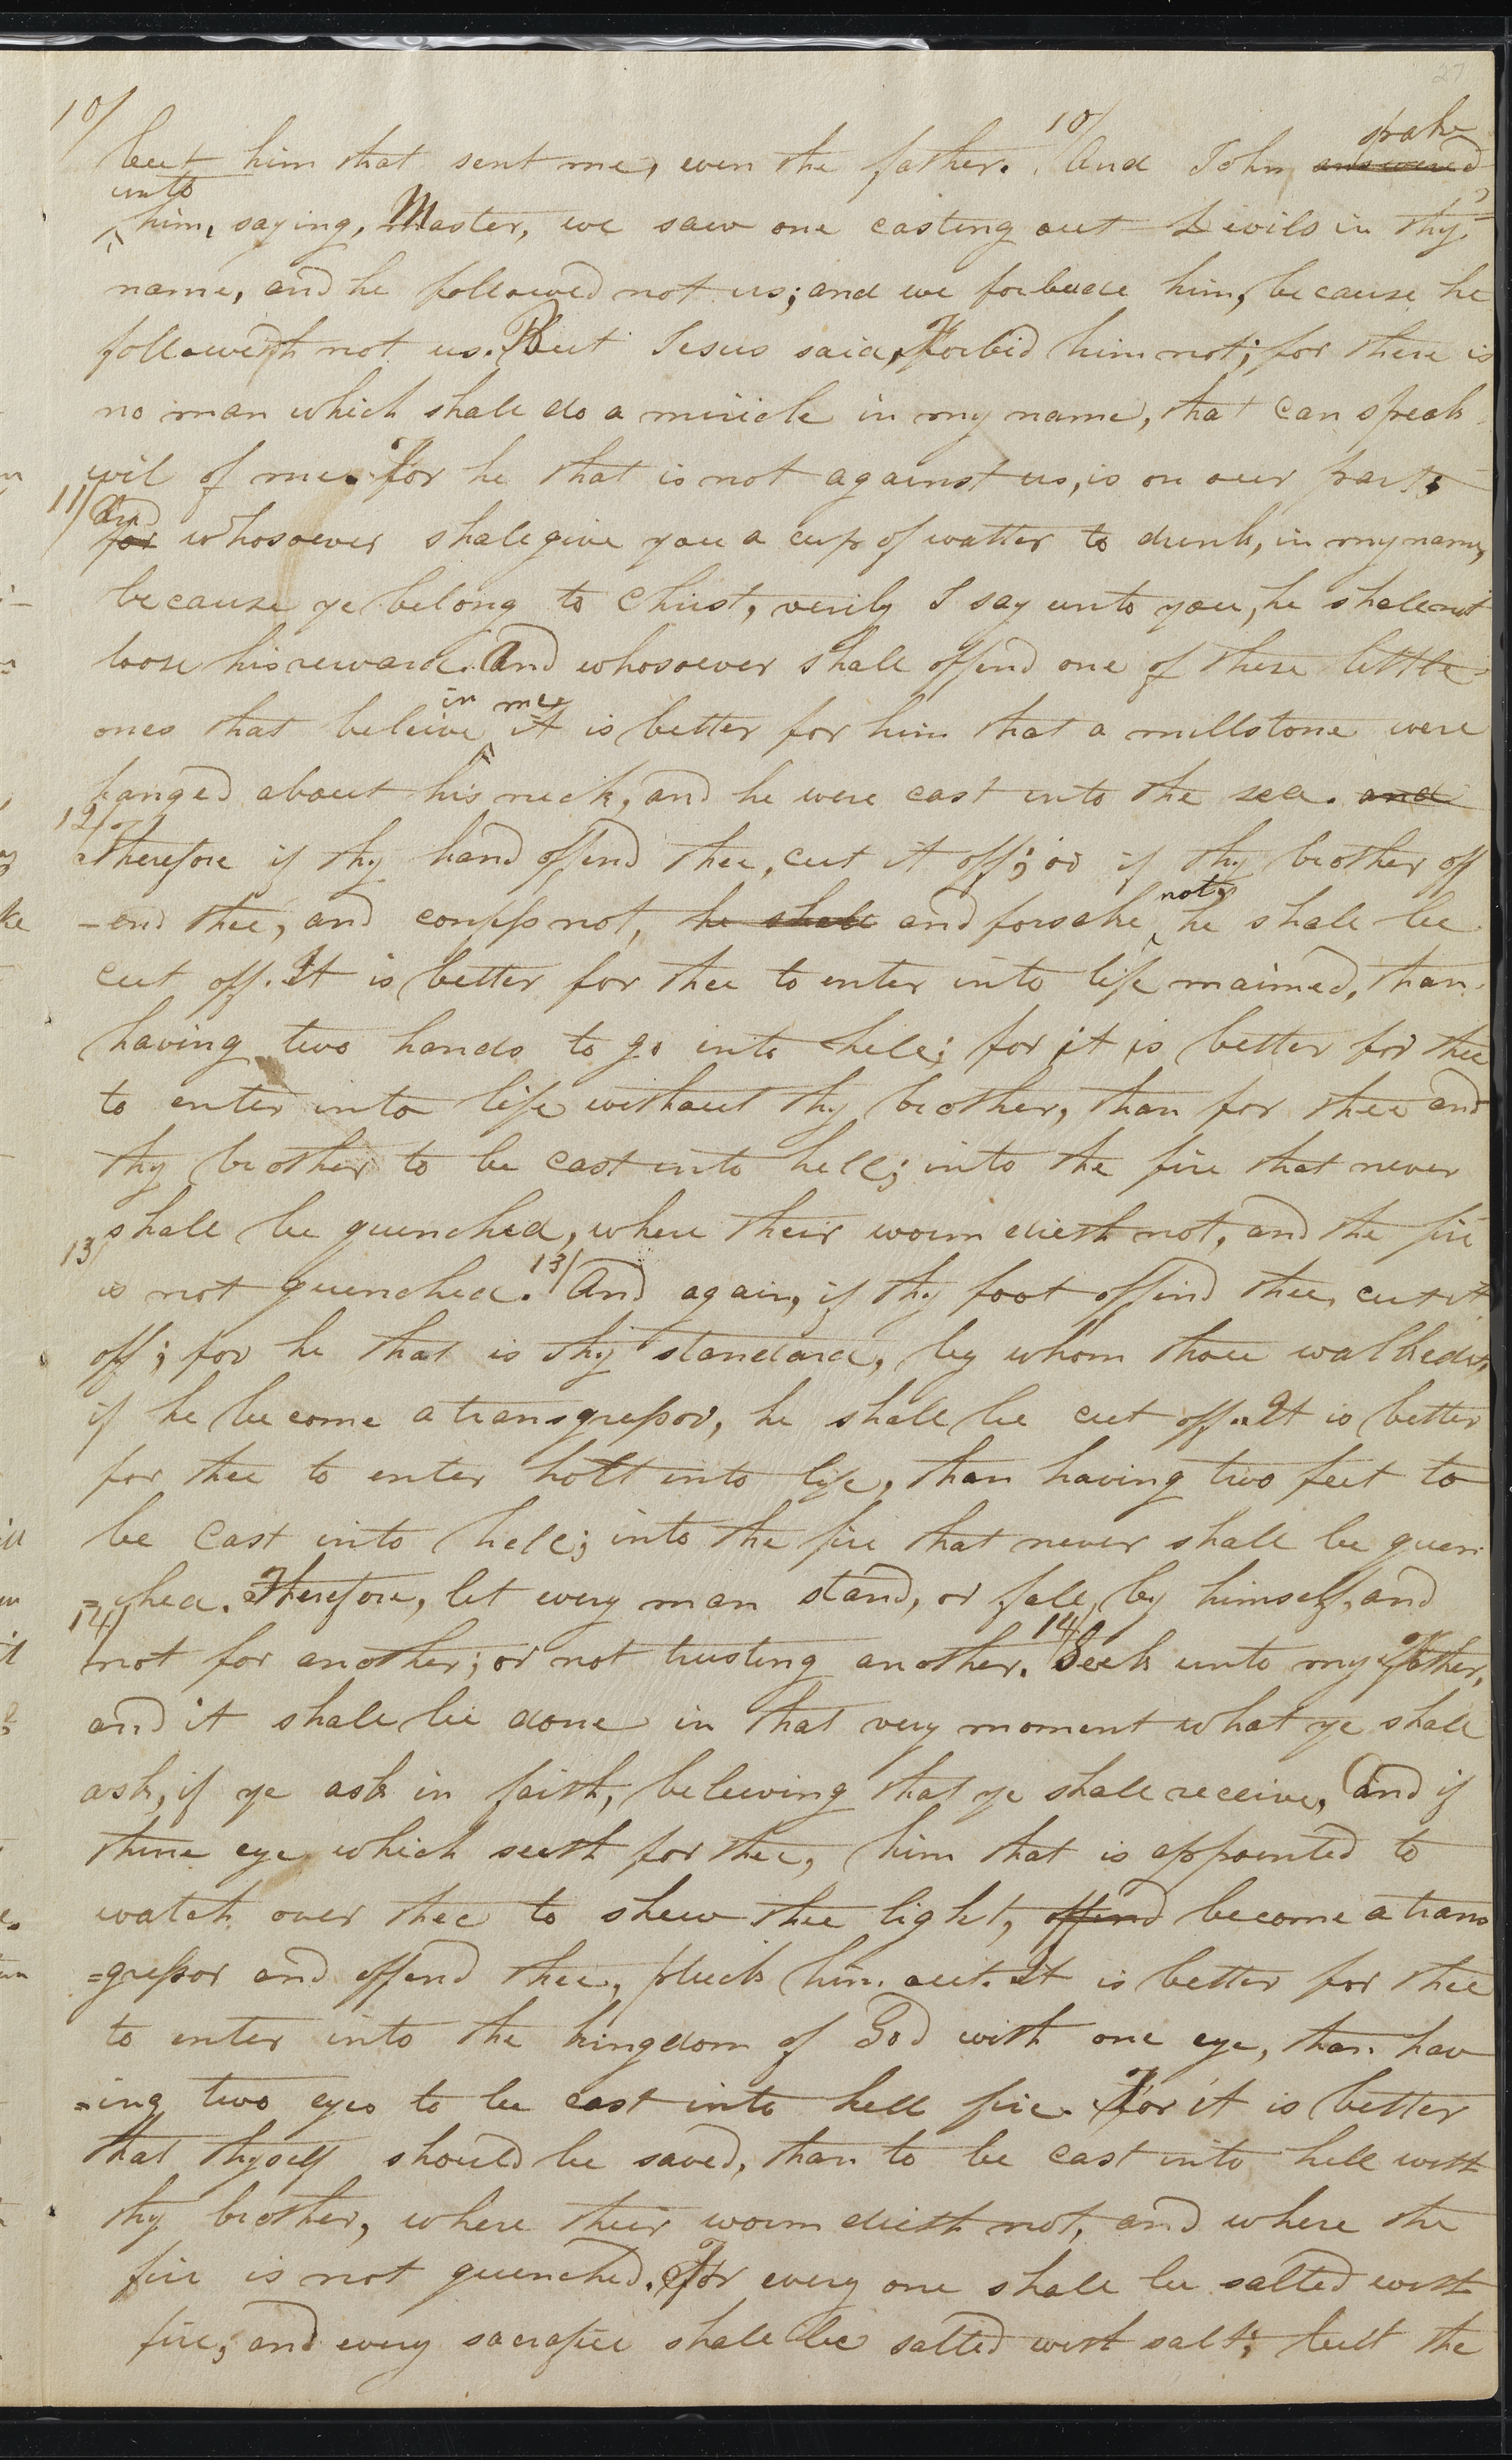 27
10/ but him that sent me, even the father. 10/ And John answered spake
unto him, saying, Master, we saw one casting out Devils in thy
name, and he followed not us; and we forbade him, because he
followeth not us. But Jesus said, Forbid him not; for there is
no man which shall do a miricle in my name, that can speak
evil of me. For he that is not against us, is on our part.
11/ for And whosoever shall give you a cup of watter to drink, in my name,
because ye belong to Christ, verily I say unto you, he shall not
loose his reward. And whosoever shall offend one of these little
ones that beleive in me, it is better for him that a millstone were
hanged about his neck, and he were cast into the sea. and
12/ Therefore if thy hand offend thee, cut it off; or if thy brother off
-end thee, and confess not, he shall and forsake not, he shall be
cut off. It is better for thee to enter into life maimed, than
having two hands to go into hell; for it is better for thee
to enter into life without thy brother, than for thee and
thy brother to be cast into hell; into the fire that never
shall be quenched, where their worm dieth not, and the fire
13/ is not quenched. 13/ And again, if thy foot offend thee, cut it
off; for he that is thy standard, by whom thou walkedst,
if he become a transgressor, he shall be cut off. It is better
for thee to enter holt into life, than having two feet to
be cast into hell; into the fire that never shall be quen
=ched. Therefore, let every man stand, or fall, by himself, and
14/ not for another; or not trusting another. 14/ Seek unto my Father,
and it shall be done in that very moment what ye shall
ask, if ye ask in faith, beleiving that ye shall receive, And if
thine eye which seeth for thee, him that is appointed to
watch over thee to shew thee light, offend become a trans
=gressor and offend thee, pluck him out. It is better for thee
to enter into the kingdom of God with one eye, than hav
=ing two eyes to be cast into hell fire. For it is better
that thyself should be saved, than to be cast into hell with
thy brother, where their worm dieth not, and where the
fire is not quenched. For every one shall be salted with
fire; and every sacrafice shall be salted with salt; but the